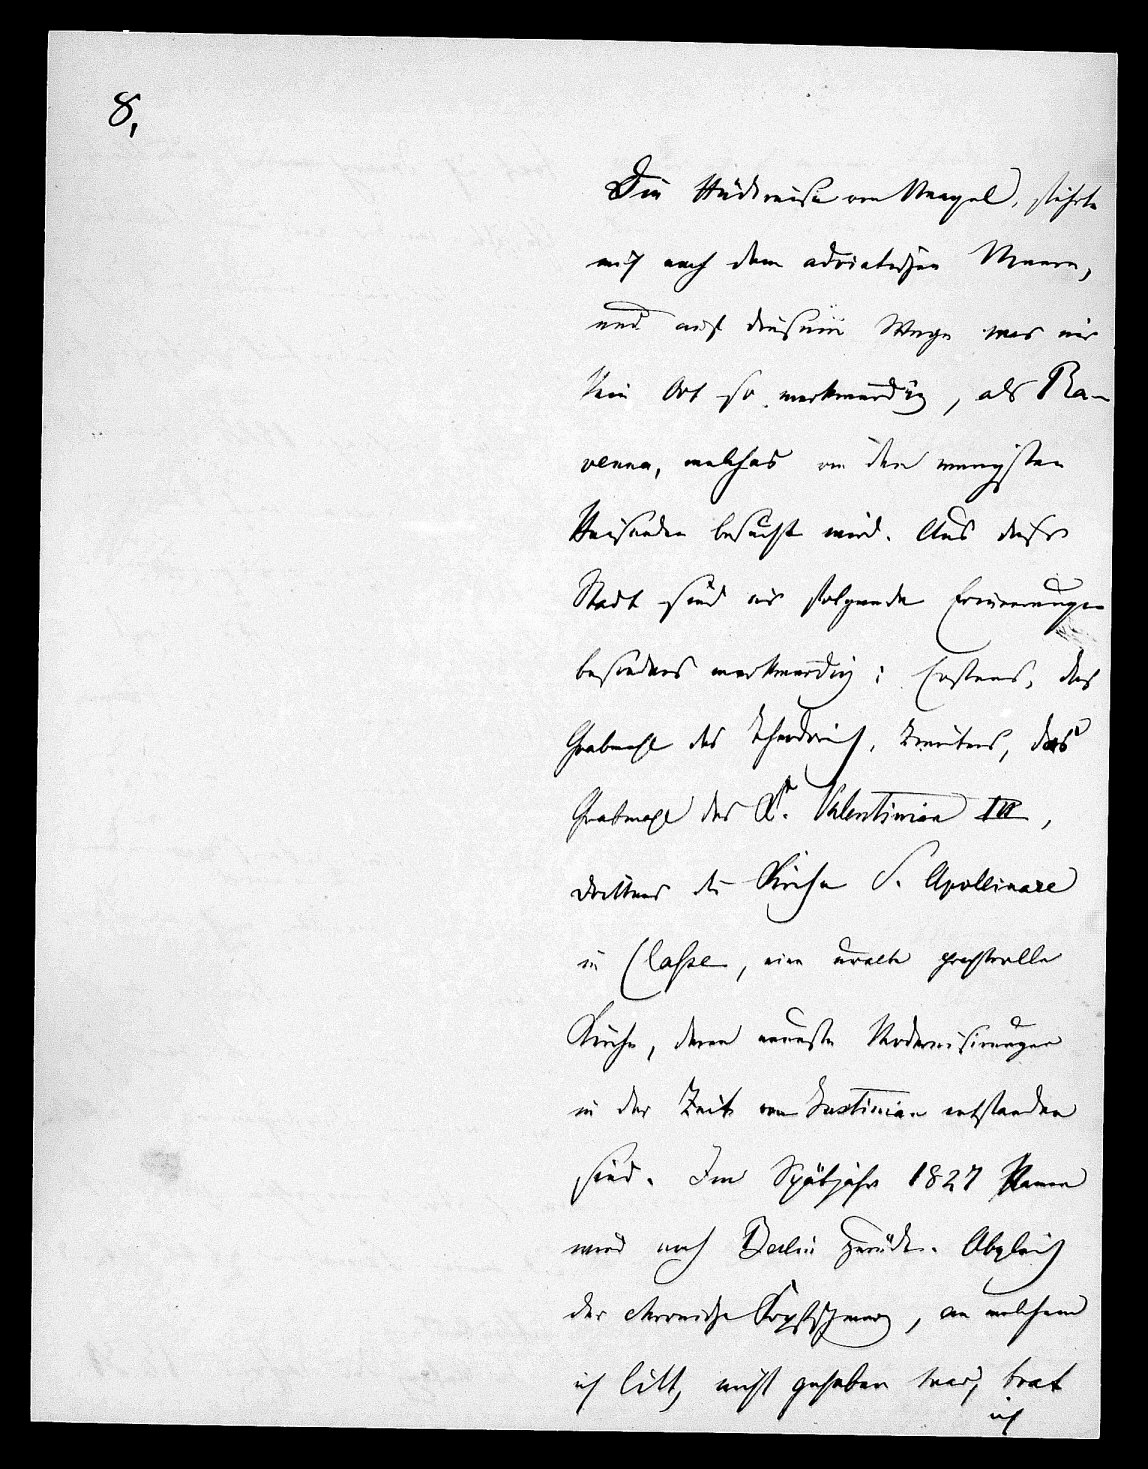 8,
Die Rückreise von Neapel, führte
mich nach dem adriatischen Meere,
und auf diesem Wege war mir
kein Ort so merkwürdig, als Ra-
venna, welches von den wenigsten
Reisenden besucht wird. Aus dieser
Stadt sind mir folgende Erinnerungen
besonders merkwürdig: Erstens, das
Grabmahl des Theodorich, Zweitens, das
Grabmahl des K. Valentinian III,
drittens die Kirche S. Apollinare
in Classe, eine uralte prachtvolle
Kirche, deren neueste Modernisirungen
in der Zeit von Justinian entstanden
sind. Im Spätjahr 1827 kamen
wir nach Berlin zurück. Obgleich
der chronische Kopfschmerz, an welchem
ich litt, nicht gehoben war, trat
ich